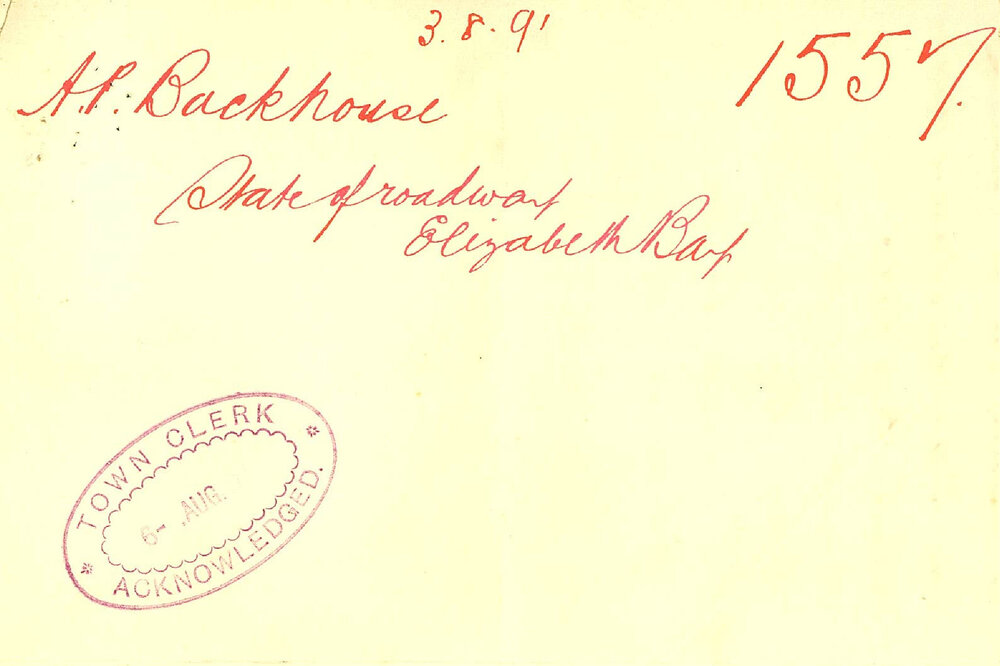 3.8.91
1557.
A.P. Backhouse
State of roadway
Elizabeth Bay
TOWN CLERK
6- AUG.
ACKNOWLEDGED.